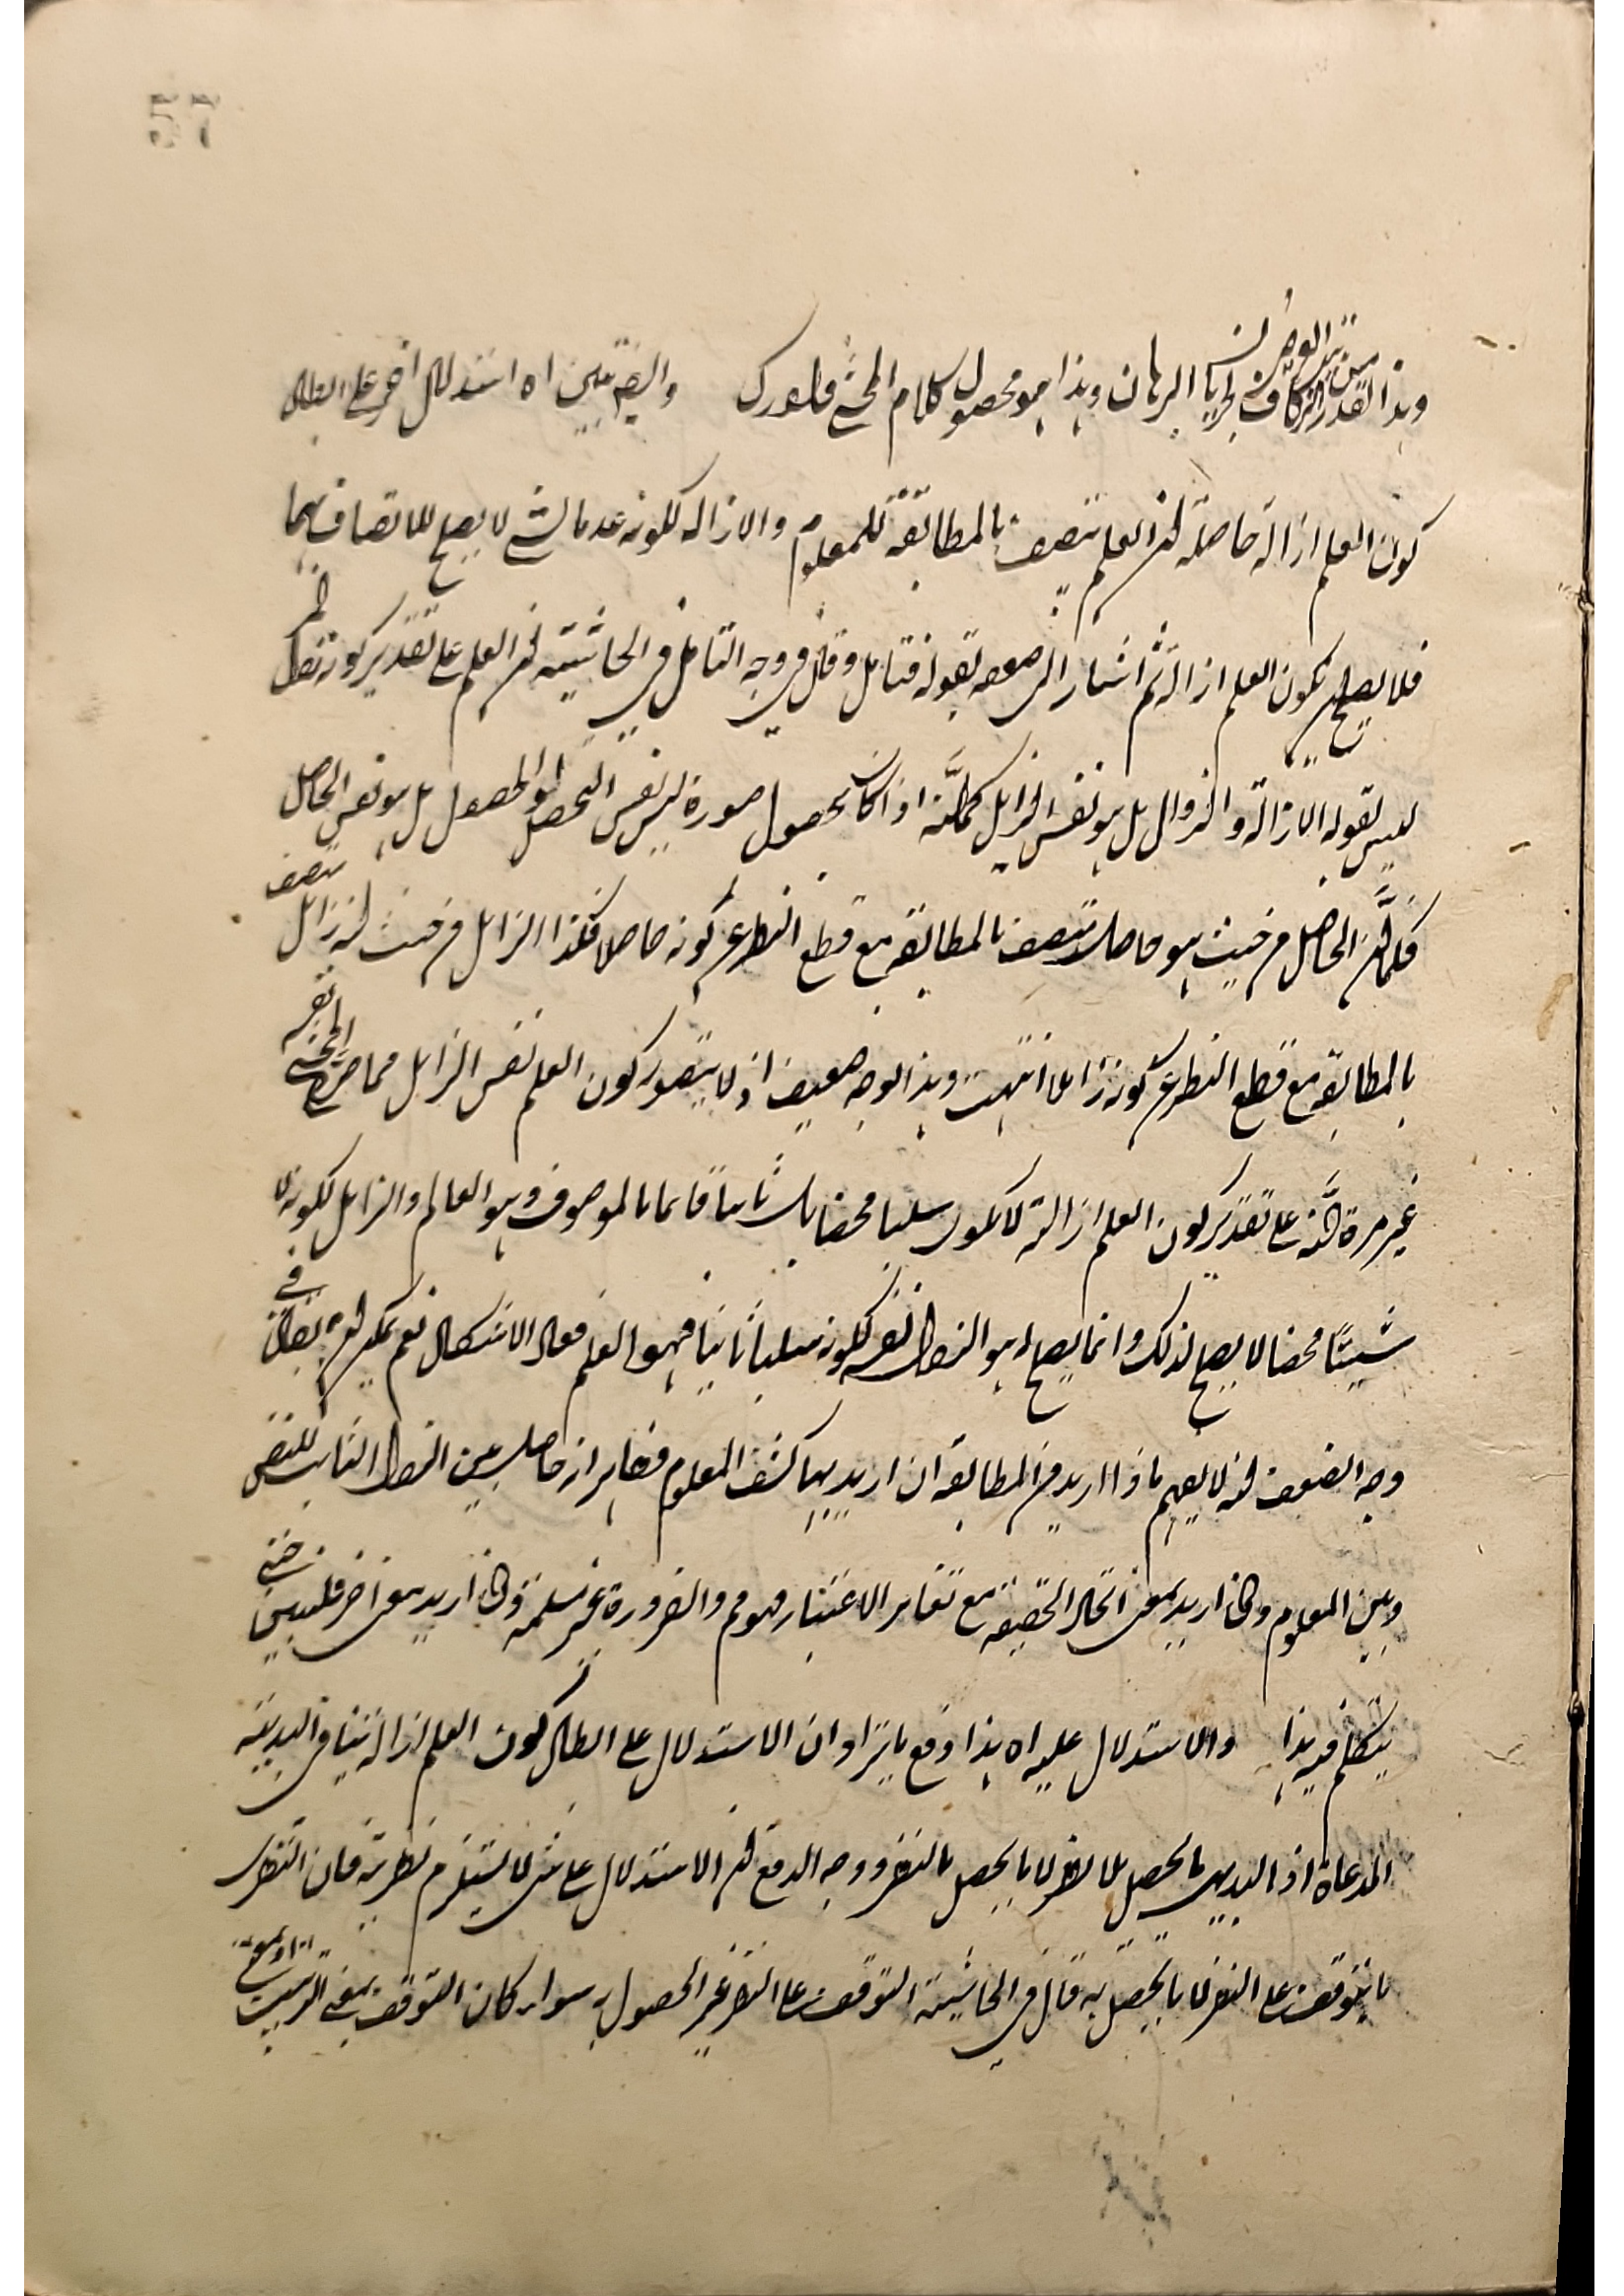 57
وهذا القدر من الترتيب كاف لجريان البرهان وهذا هو محصول كلام المحشى فادرك وايضا يتبين اه استدلال اخر على ابطال
كون العلم ازالة حاصله ان العلم يتصف بالمطابقة للمعلوم والازالة لكونه عدما لشى لا يصلح للاتصاف بهما
فلا يصلح ان يكون العلم ازالة ثم اشار الى ضعفه بقوله فتامل وقال فى وجه التامل فى الحاشية ان العلم على تقدير كونه زوالا
ليس بقوله الازالة والزوال بل هو نفس الزايل كما انه اذا كان بحصول صورة ليس نفس التحصيل والحصول بل هو نفس الحاصل
فكما ان الحاصل من حيث هو حاصل يتصف بالمطابقة مع قطع النظر عن كونه حاصلا فكذا الزايل من حيث انه زايل يتصف
بالمطابقة مع قطع النظر عن كونه زايلا انتهت وهذا الوجه ضعيف اذ لا يتصور كون العلم نفس الزايل مما صرح المحشى نفسه
غير مرة انه على تقدير كون العلم ازالة لا يكون سلبا محضا بل ثابتا قايما بالموصوف وهو العالم والزايل لكونه لا
شيئا محضا لا يصلح لذلك وانما يصلح له هو الزوال نفسه لكونه سلبا ثابتا فهو العلم فعاد الاشكال نعم يمكن ان يقال فى
وجه الضعف انه لا يفهم ماذا اريد من المطابقة ان اريد بها كشف المعلوم فظاهر انه حاصل بين الزوال الثابت للنفس
وبين المعلوم وان اريد بمعنى اتحاد الحقيقة مع تغاير الاعتبار فهو مم والضرورة غير مسلمة وان اريد معنى اخر فليبين حتى
يتكلم فيه هذا والاستدلال عليه اه هذا دفع ما يتراى ان الاستدلال على ابطال كون العلم ازالة ينافى البديهية
المدعاة اذ البديهى ما يحصل بلا نظر لا ما يحصل بالنظر ووجه الدفع ان الاستدلال على شى لا يستلزم نظريته فان النظرى
ما يتوقف على النظر لا ما يحصل به قال فى الحاشية التوقف على النظر غير الحصول به سواء كان التوقف بمعنى الترتيب او بمعنى